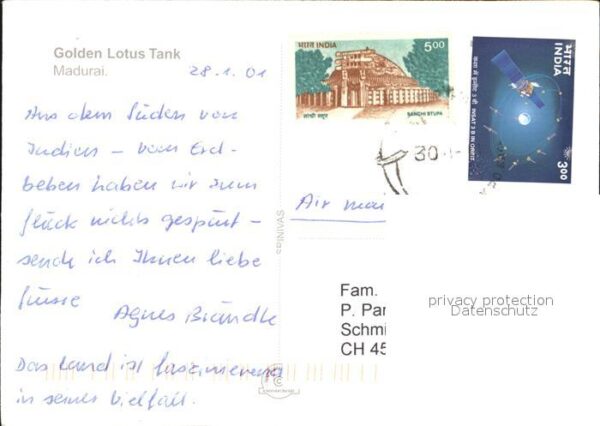 Golden Lotus Tank
Madurai.
28.1.01
Aus dem Süden von
Indien – vom Erd-
beben haben wir zum
Glück nichts gespürt –
sende ich Ihnen liebe
Grüsse
Agnes Brändle
Das Land ist faszinierend
in seiner Vielfalt.
SRINIVAS
भारत INDIA
5.00
सांची स्तूप
SANCHI STUPA
भारत
INDIA
INSAT 3 B IN ORBIT
3.00
30
Air mai
Fam.
P. Par
Schmi
CH 45
privacy protection
Datenschutz